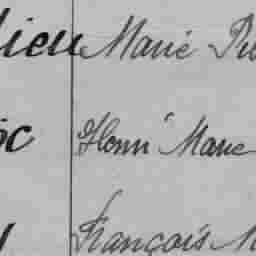 lieu Marie Pi
oc Henri Marie
François M